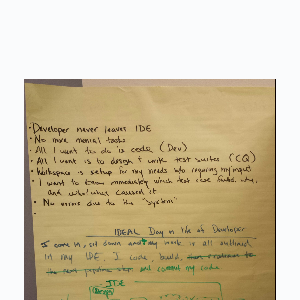 · Developer never leaves IDE
· No more menial tasks
· All I want to do is code (Dev)
· All I want is to design & write test suites (CQ)
· Workspace is setup for my needs w/o requiring my input
· I want to know immediately which test case failed, why,
and who/what caused it
· No errors due to the "system"
·
IDEAL Day in life of Developer
I come in, sit down and my work is all outlined
in my IDE. I code, build,
the next pipeline step and commit my code
IDE